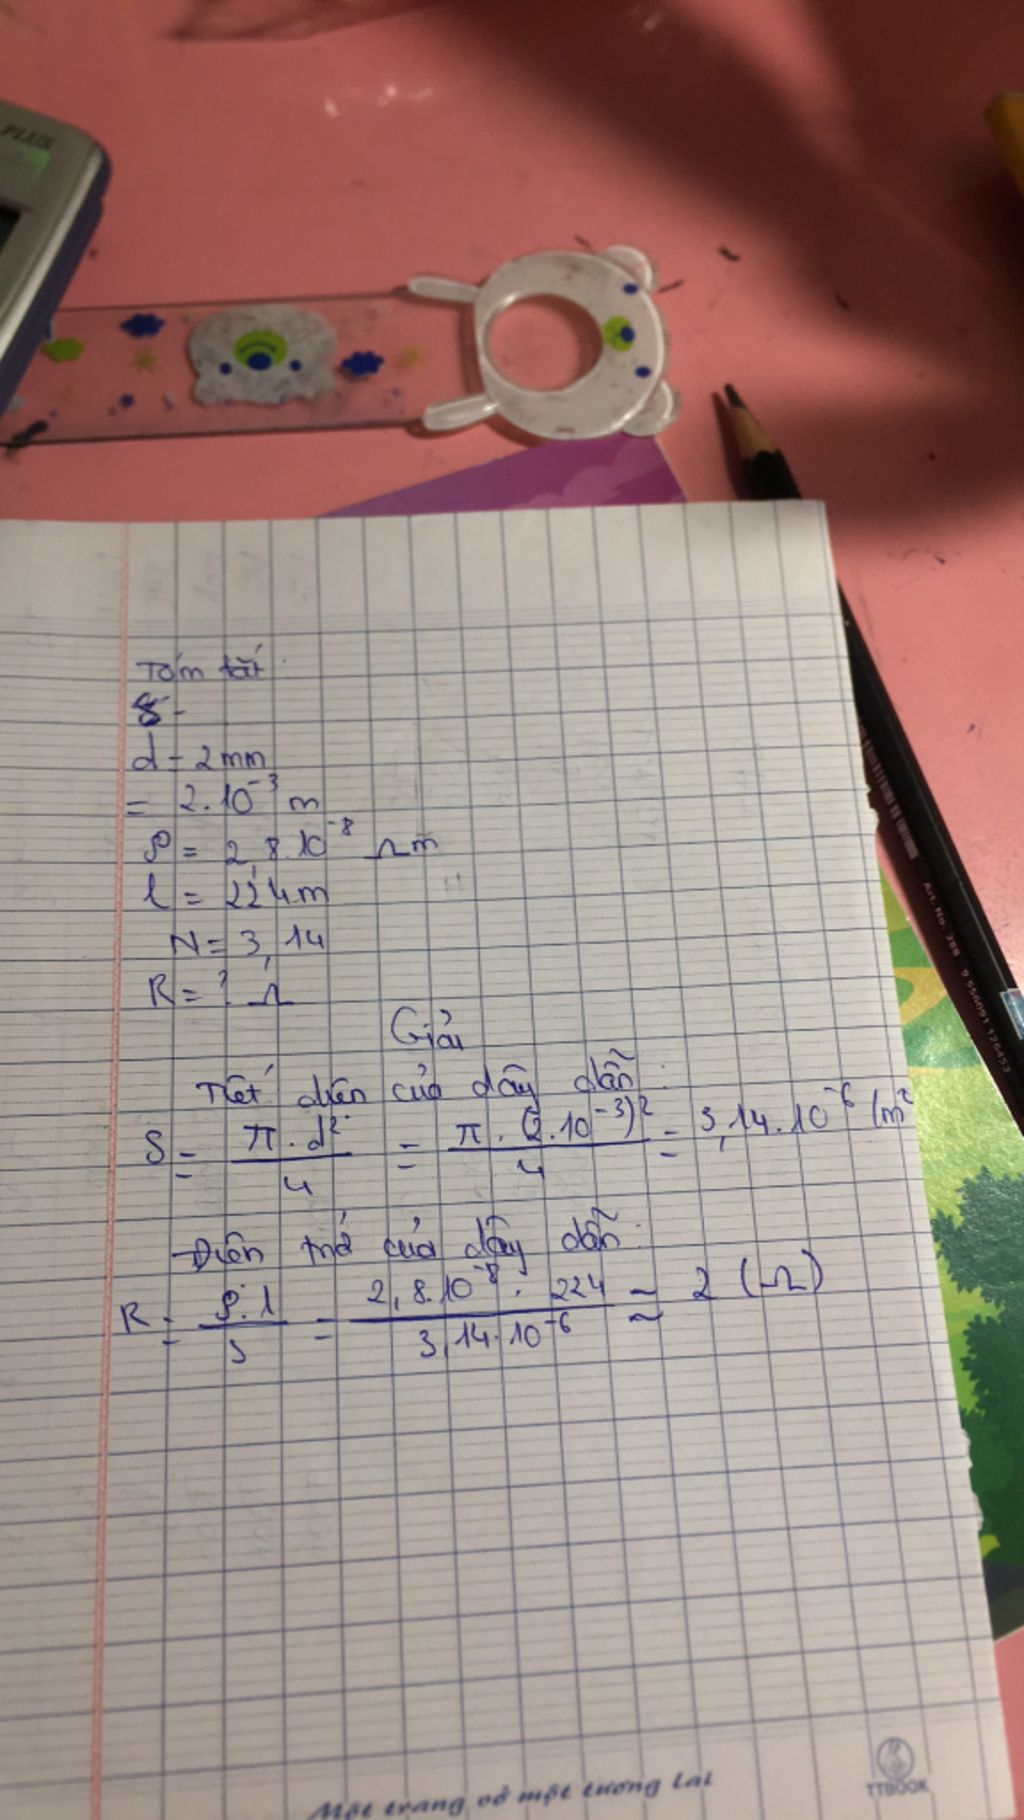 PLUS
Tóm tắt:
d = 2mm
= 2.10⁻³ m
ρ = 2,8.10⁻⁸ Ωm
l = 224m
N = 3,14
R = ? Ω
Giải
Tiết diện của dây dẫn:
S = π.d²/4 = π.(2.10⁻³)²/4 = 3,14.10⁻⁶ (m²
Điện trở của dây dẫn:
R = ρ.l/S = 2,8.10⁻⁸.224/3,14.10⁻⁶ ≈ 2 (Ω)
Art. No. 288 9 556091 126453
Một trang vở một tương lai
TTBOOK